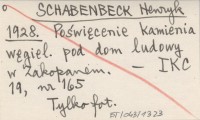 SCHABENBECK Henryk
1928. Poświęcenie kamienia
węgiel. pod dom ludowy
w Zakopanem. — IKC
19, nr 165
Tylko fot.